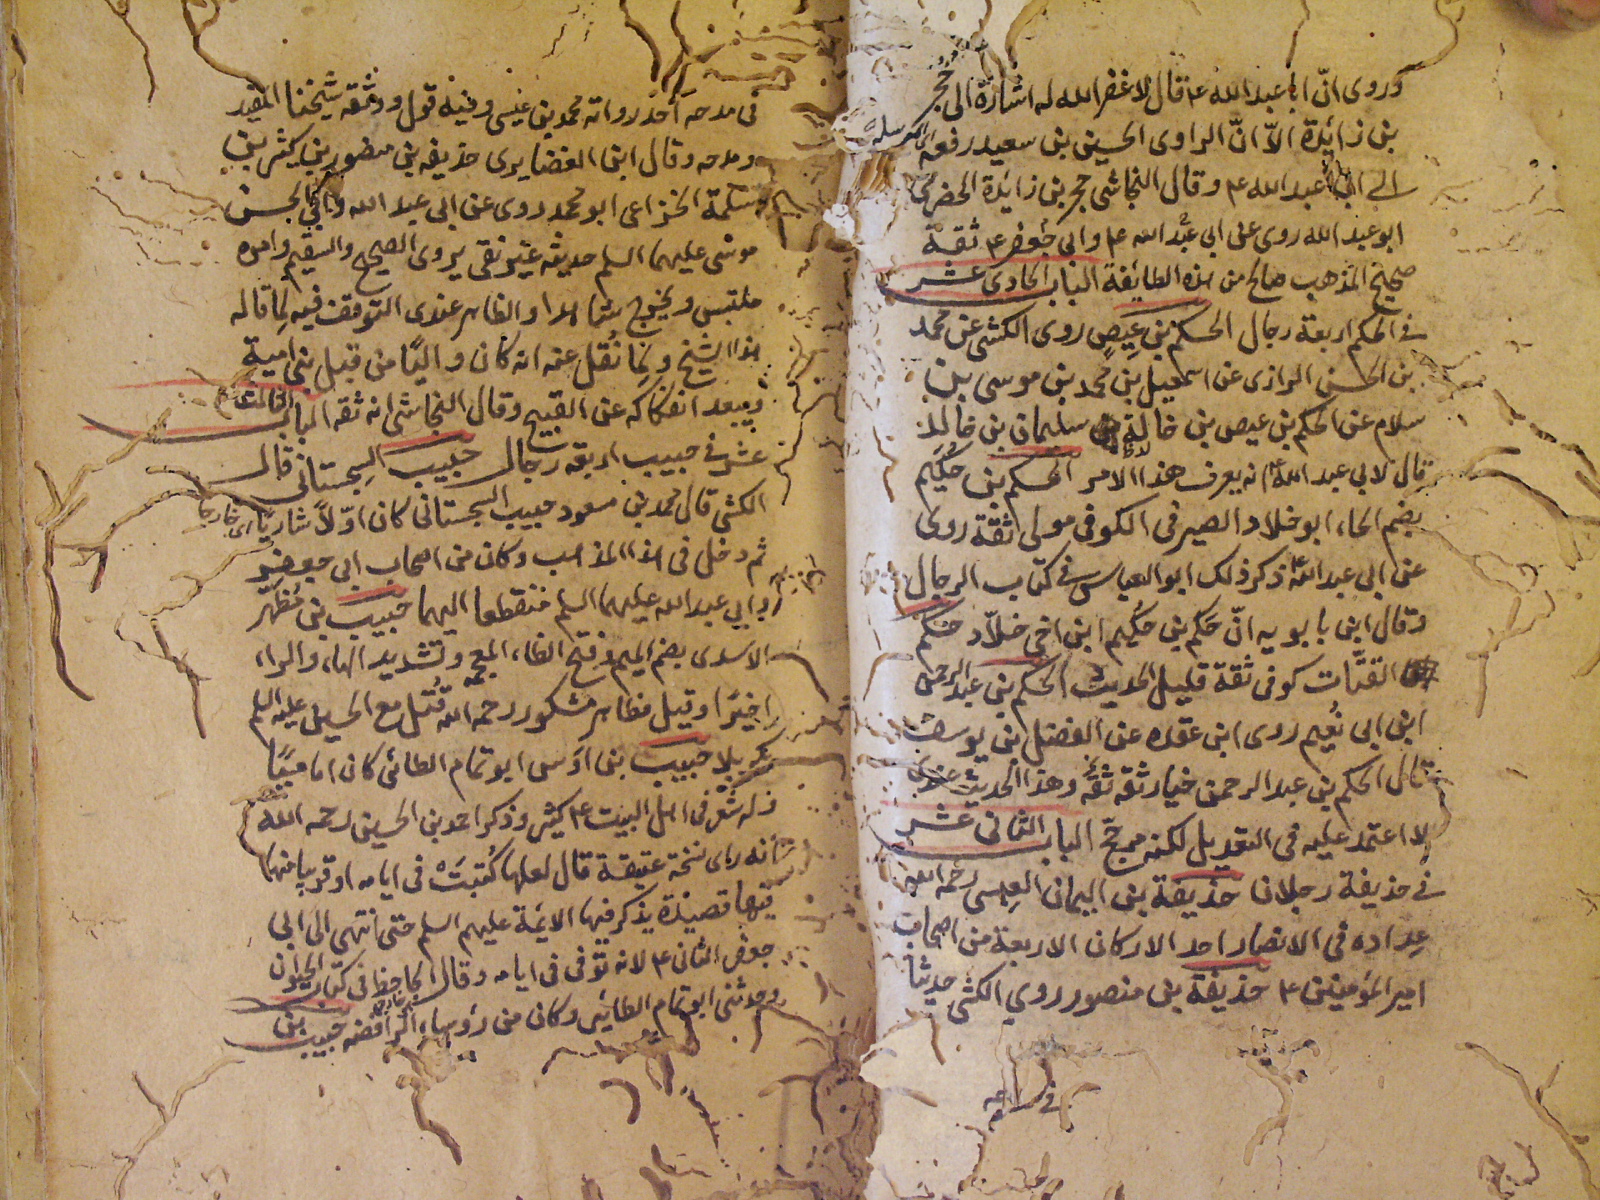 وروى انّ ابا عبد الله ع قال لا غفر الله له اشارة الى حُجر
بن زائدة الاّ انّ الراوى الحسين بن سعيد رفعه
الى ابى عبد الله ع وقال النجاشى حجر بن زائدة الحضرمى
ابو عبد الله روى عن ابى عبد الله ع وابى جعفر ع ثقة
صحيح المذهب صالح من هذه الطائفة الباب الحادى عشر
فى الحكم اربعة رجال الحكم بن عيص روى الكشى عن محمد
بن الحسن الرازى عن اسمعيل بن محمد بن موسى بن
سلام عن الحكم بن عيص بن خالة سليمان بن خالد
قال لابى عبد الله انه يعرف هذا الامر الحكم بن حُكَيم
بضم الحاء ابو خلاد الصيرفى الكوفى مولى ثقة روى
عن ابى عبد الله ذكر ذلك ابو العباس فى كتاب الرجال
وقال ابن بابويه انّ حكم بن حُكيم ابن اخى خلّاد حكم
القتّات كوفى ثقة قليل الحديث الحكم بن عبد الرحمن
ابن ابى نُعيم روى ابن عقده عن الفضل بن يوسف
قال الحكم بن عبد الرحمن خيار ثقة ثقة وهذا الحديث عندى
لا اعتمد عليه فى التعديل لكنه مرجح الباب الثانى عشر
فى حذيفة رجلان حذيفة بن اليمان العبسى رحمه الله
عداده فى الانصار احد الاركان الاربعة من اصحاب
امير المؤمنين ع حذيفة بن منصور روى الكشى حديثا
فى مدحه
فى مدحه احد رواته محمد بن عيسى وفيه قول ووثقه شيخنا المفيد
ومدحه وقال ابن الغضايرى حذيفه بن منصور بن كثير بن
سلمة الخزاعى ابو محمد روى عن ابى عبد الله وابى الحسن
موسى عليهما السلم حديثه غير نقى يروى الصحيح والسقيم وامره
ملتبس ويخرج شاهدا والظاهر عندى التوقف فيه لما قاله
هذا الشيخ ولما نُقل عنه انه كان واليًا من قبل بنى امية
ويبعد انفكاكه عن القبيح وقال النجاشى انه ثقه الباب الثالث
عشر فى حبيب اربعه رجال حبيب السجستانى قال
الكشى قال محمد بن مسعود حبيب السجستانى كان اوّلا شاريًا اى خارجيا
ثم دخل فى هذا المذهب وكان من اصحاب ابى جعفر
وابى عبد الله عليهما السلم منقطعا اليهما حبيب بن مُظهّر
الاسدى بضم الميم وفتح الظاء المعجمه وتشديد الهاء والراء
اخيرًا وقيل مظاهر مشكور رحمه الله قُتل مع الحسين عليه السلم
بكربلا حبيب بن اوس ابو تمام الطائى كان اماميًا
وله شعر فى اهل البيت ع كثير وذكر احمد بن الحسين رحمه الله
انه راى نسخة عتيقة قال لعلها كُتبَتْ فى ايامه او قريبا منها
فيها قصيدة يذكر فيها الائمة عليهم السلم حتى انتهى الى ابى
جعفر الثانى ع لانه توفى فى ايامه وقال الجاحظ فى كتاب الحيوان
وحدثنى ابو تمام الطائى وكان من رؤساء الرافضه حبيب بن